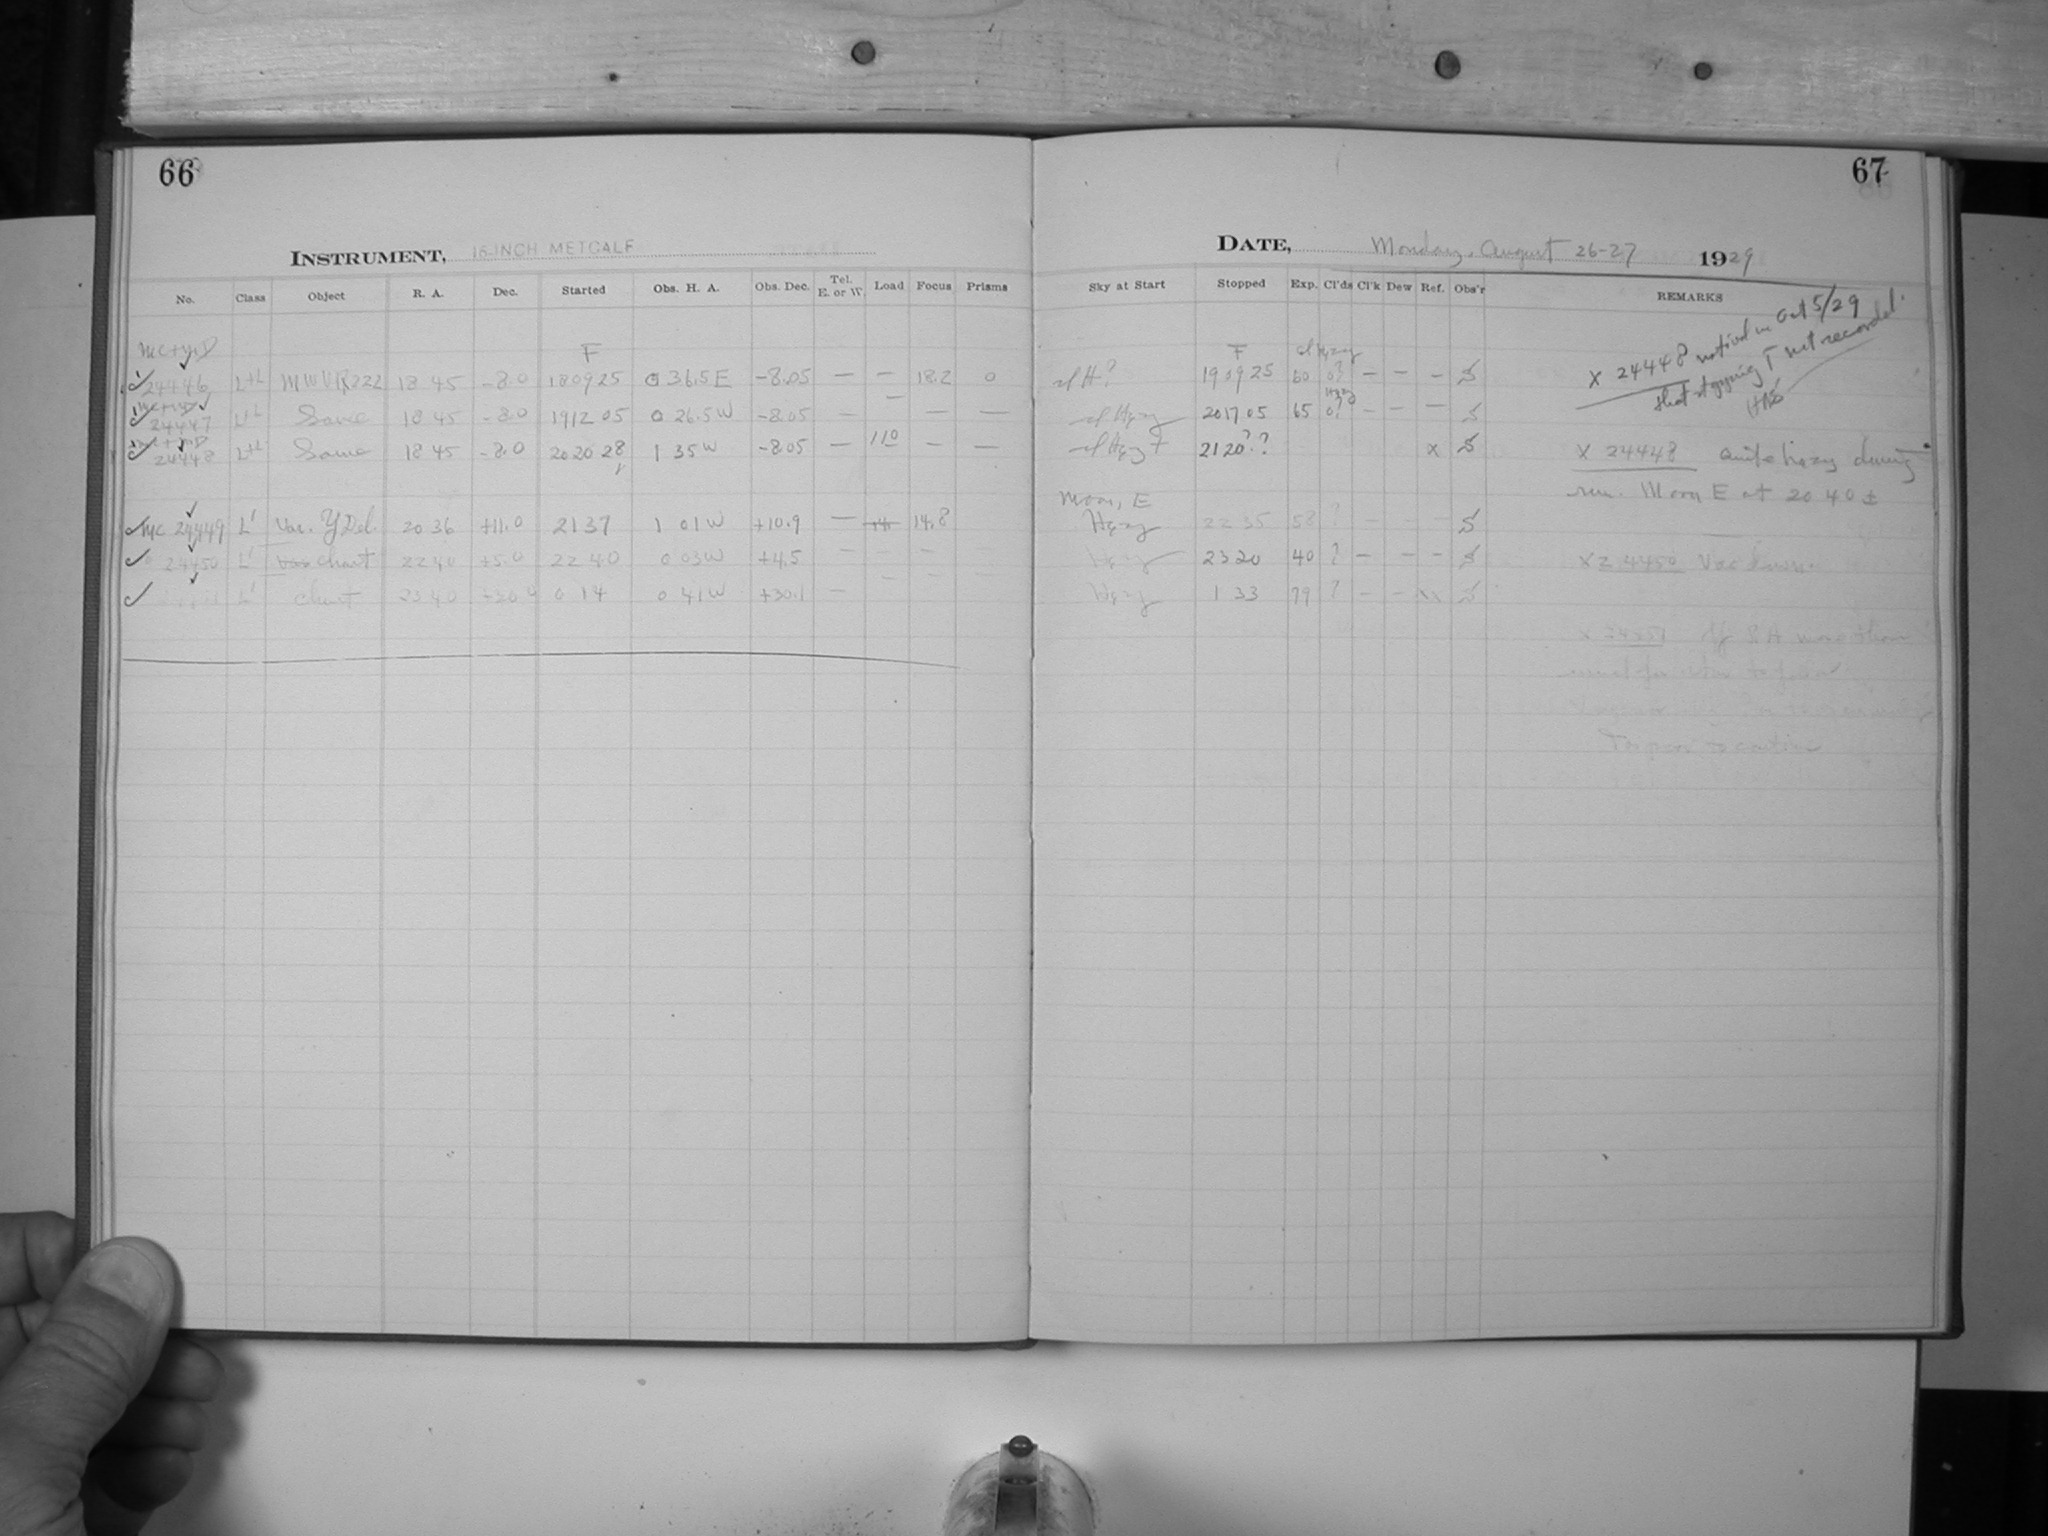 66
INSTRUMENT, 16-INCH METCALF
No. Class Object R. A. Dec. Started Obs. H. A. Obs. Dec. Tel. E. or W. Load Focus Prisms
MC+MD F
24446 L+L MWVR222 18 45 -8.0 18 09 25 0 36.5 E -8.05 — — 18.2 0
MC+MD
24447 L+L Same 18 45 -8.0 19 12 05 0 26.5 W -8.05 — — — —
MC+MD
24448 L+L Same 18 45 -8.0 20 20 28 1 35 W -8.05 — 110 — —
MC 24449 L' Var. Y Del 20 36 +11.0 21 37 1 01 W +10.9 — 14.8
24450 L' Chart 22 40 +5.0 22 40 0 03 W +4.5 — — —
L' Chart 23 40 0 14 0 41 W +30.1 —
67
DATE, Monday, August 26-27 1929
Sky at Start Stopped Exp. Cl'ds Cl'k Dew Ref. Obs'r REMARKS
F cl Hazy
cl H? 19 09 25 60 0? — — — S
cl Hazy 20 17 05 65 Hazy 0? — — — S
cl Hazy 21 20?? x S
Moon, E
Hazy 22 35 58 ? — — — S
Hazy 23 20 40 ? — — — S
Hazy 1 33 79 ? — — xx S
X 24448 noticed on Oct 5/29
that stopping T not recorded.
X 24448 Quite hazy during
run. Moon E at 20 40 ±
X 24450
X 24451 If R A more than